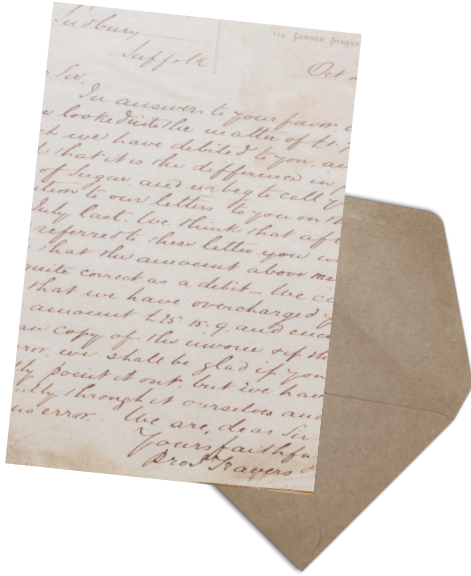 Sudbury
119, Cannon Street
Suffolk
Oct
Sir,
In answer to your favor
looked into the matter of £1.
we have debited to you, an
that it is the difference in
of Sugar and we beg to call y
tion to our letters to you on th
July last. We think that aft
referred to these letter you w
that the amount above me
quite correct as a debit. We c
that we have overcharged y
amount £25.15.9, and enc
copy of the invoice
ror. we shall be glad if you
point it out, but we hav
lly through it ourselves and
no error.
We are, dear Sir
Yours faithfu
Travers